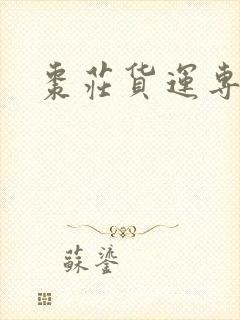 棗莊貨運專
蘇鎏